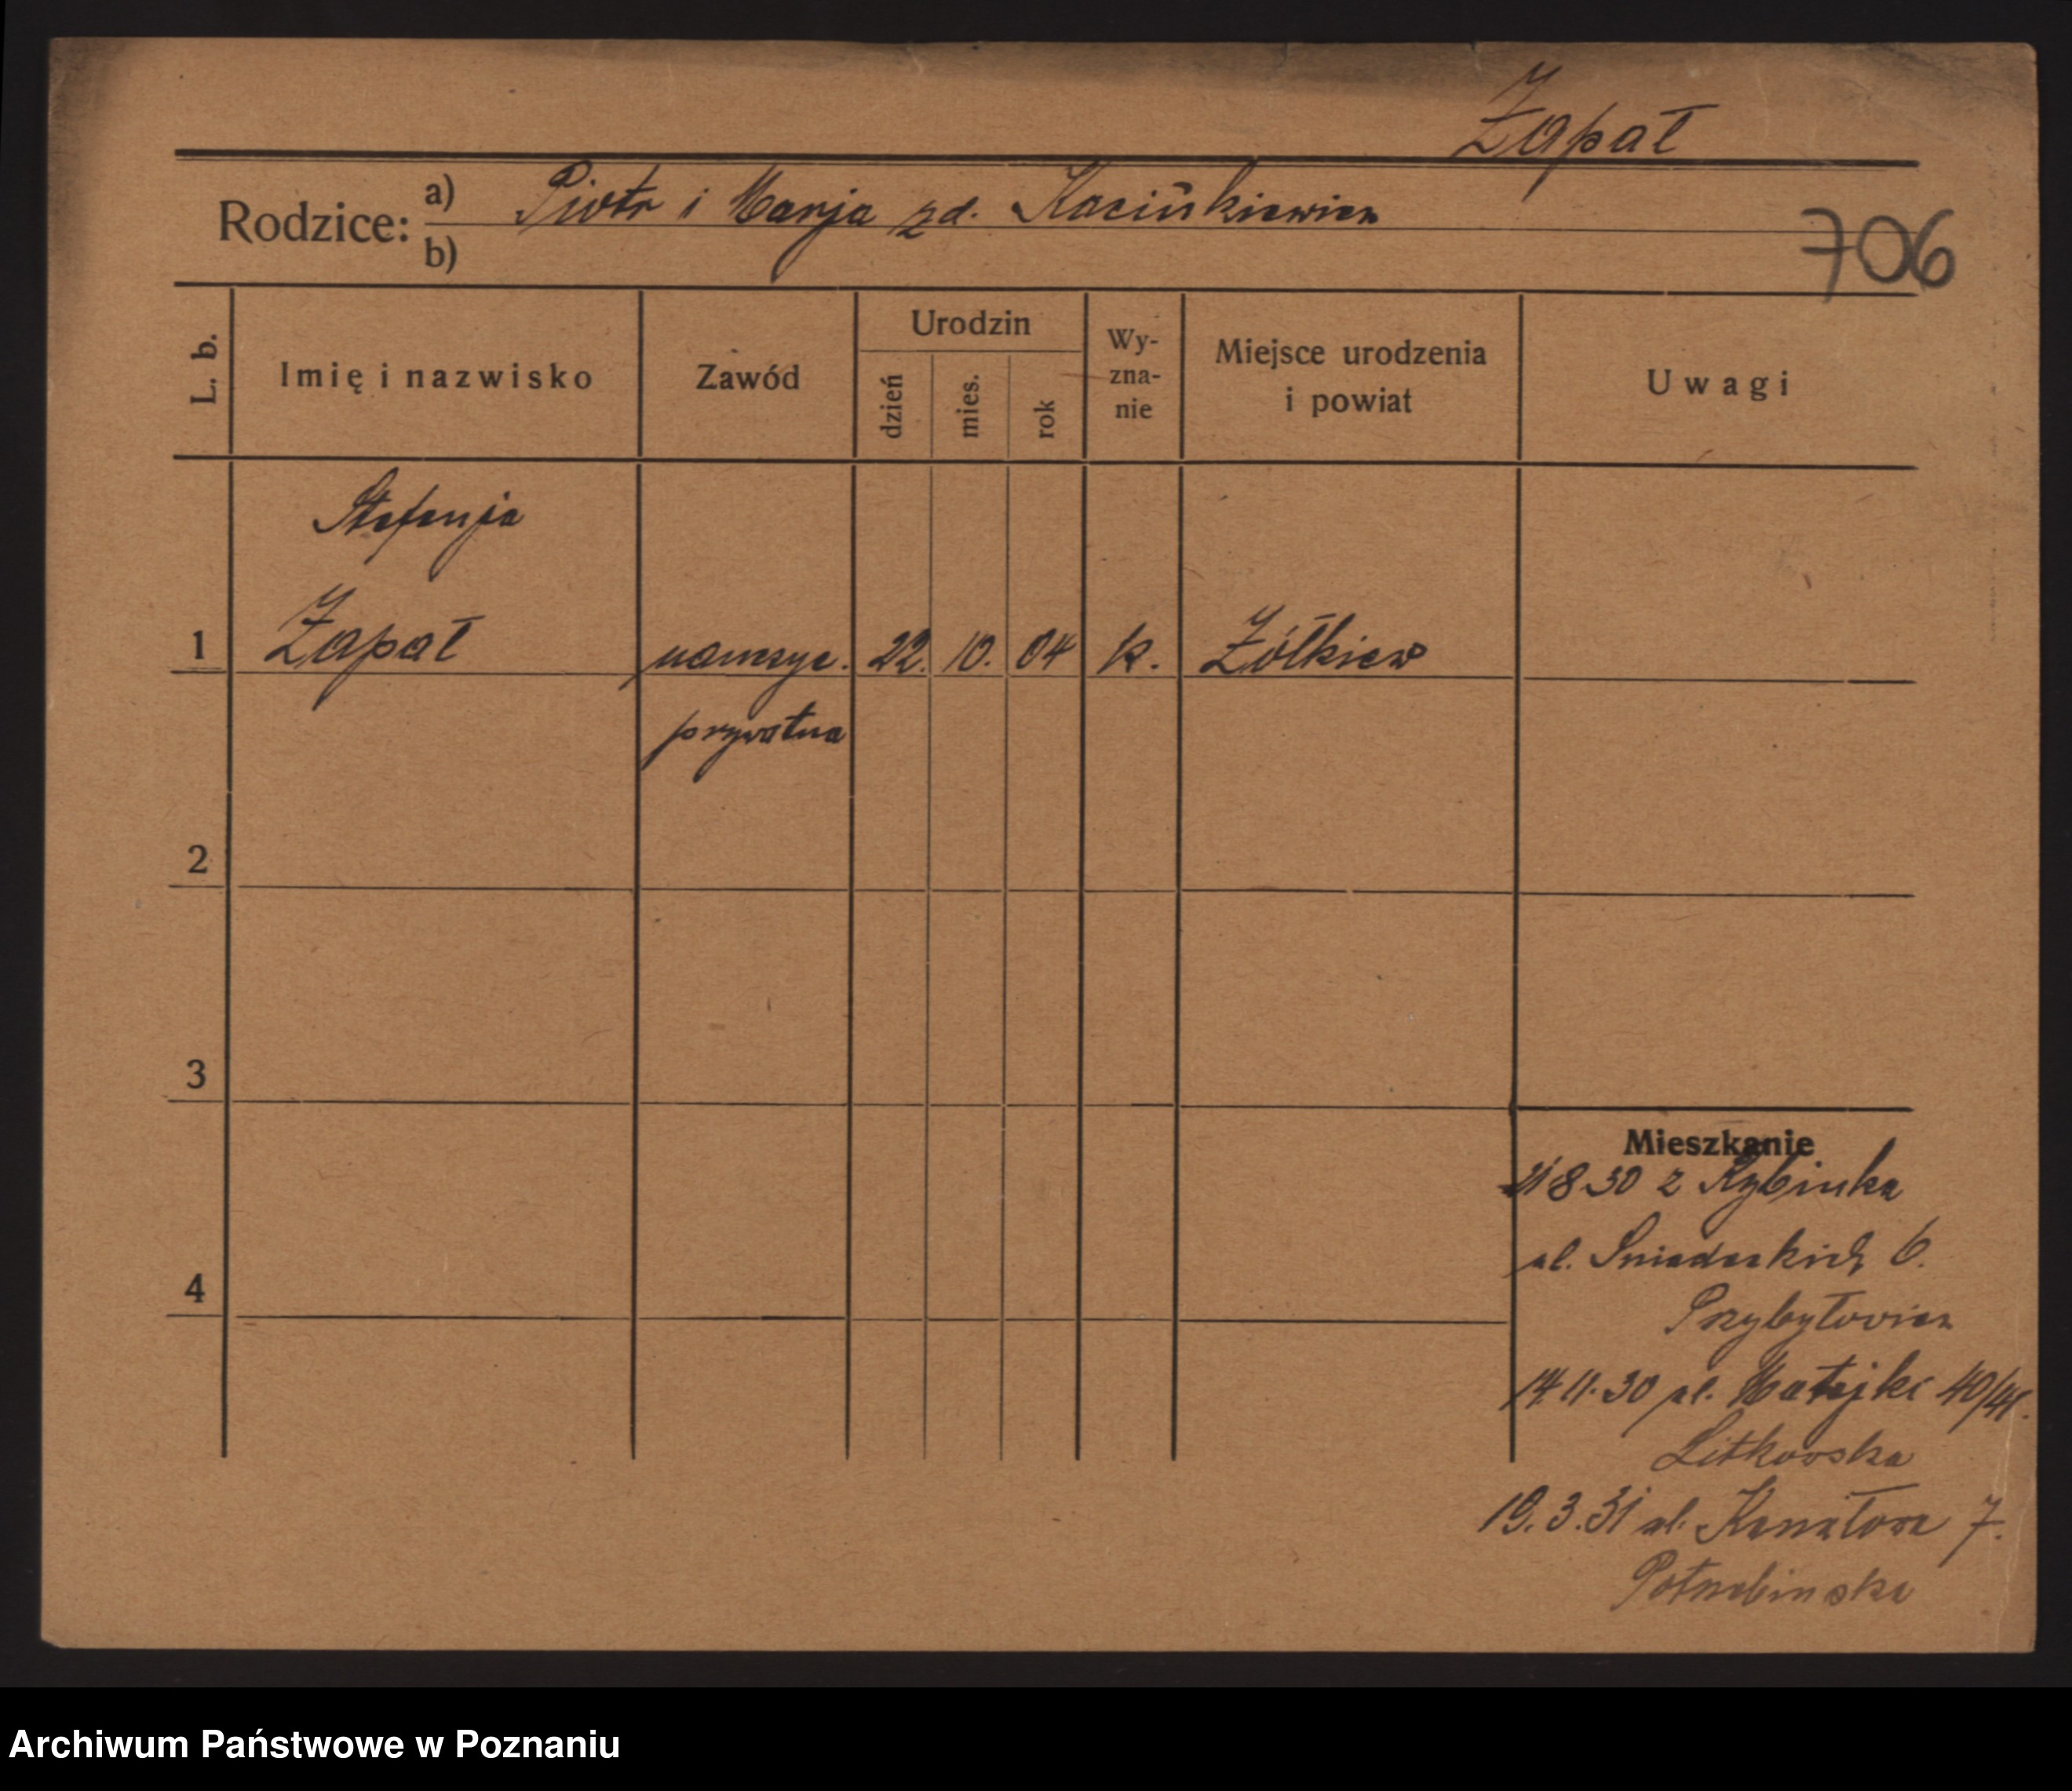 Zapał
Rodzice: a) Piotr i Marja zd. Kacińkiewicz
b)
706
L. b.
Imię i nazwisko
Zawód
Urodzin
dzień
mies.
rok
Wy-
zna-
nie
Miejsce urodzenia
i powiat
Uwagi
Stefanja
1 Zapał nauczyc. 22. 10. 04 k. Żółkiew
prywatna
2
3
4
Mieszkanie
8 30 z Rybinka
ul. Sniadeckich 6.
Przybyłowicz
14 11. 30 ul. Matejki 40/41.
Litkowska
19. 3. 31 ul. Kanałowa 7.
Archiwum Państwowe w Poznaniu